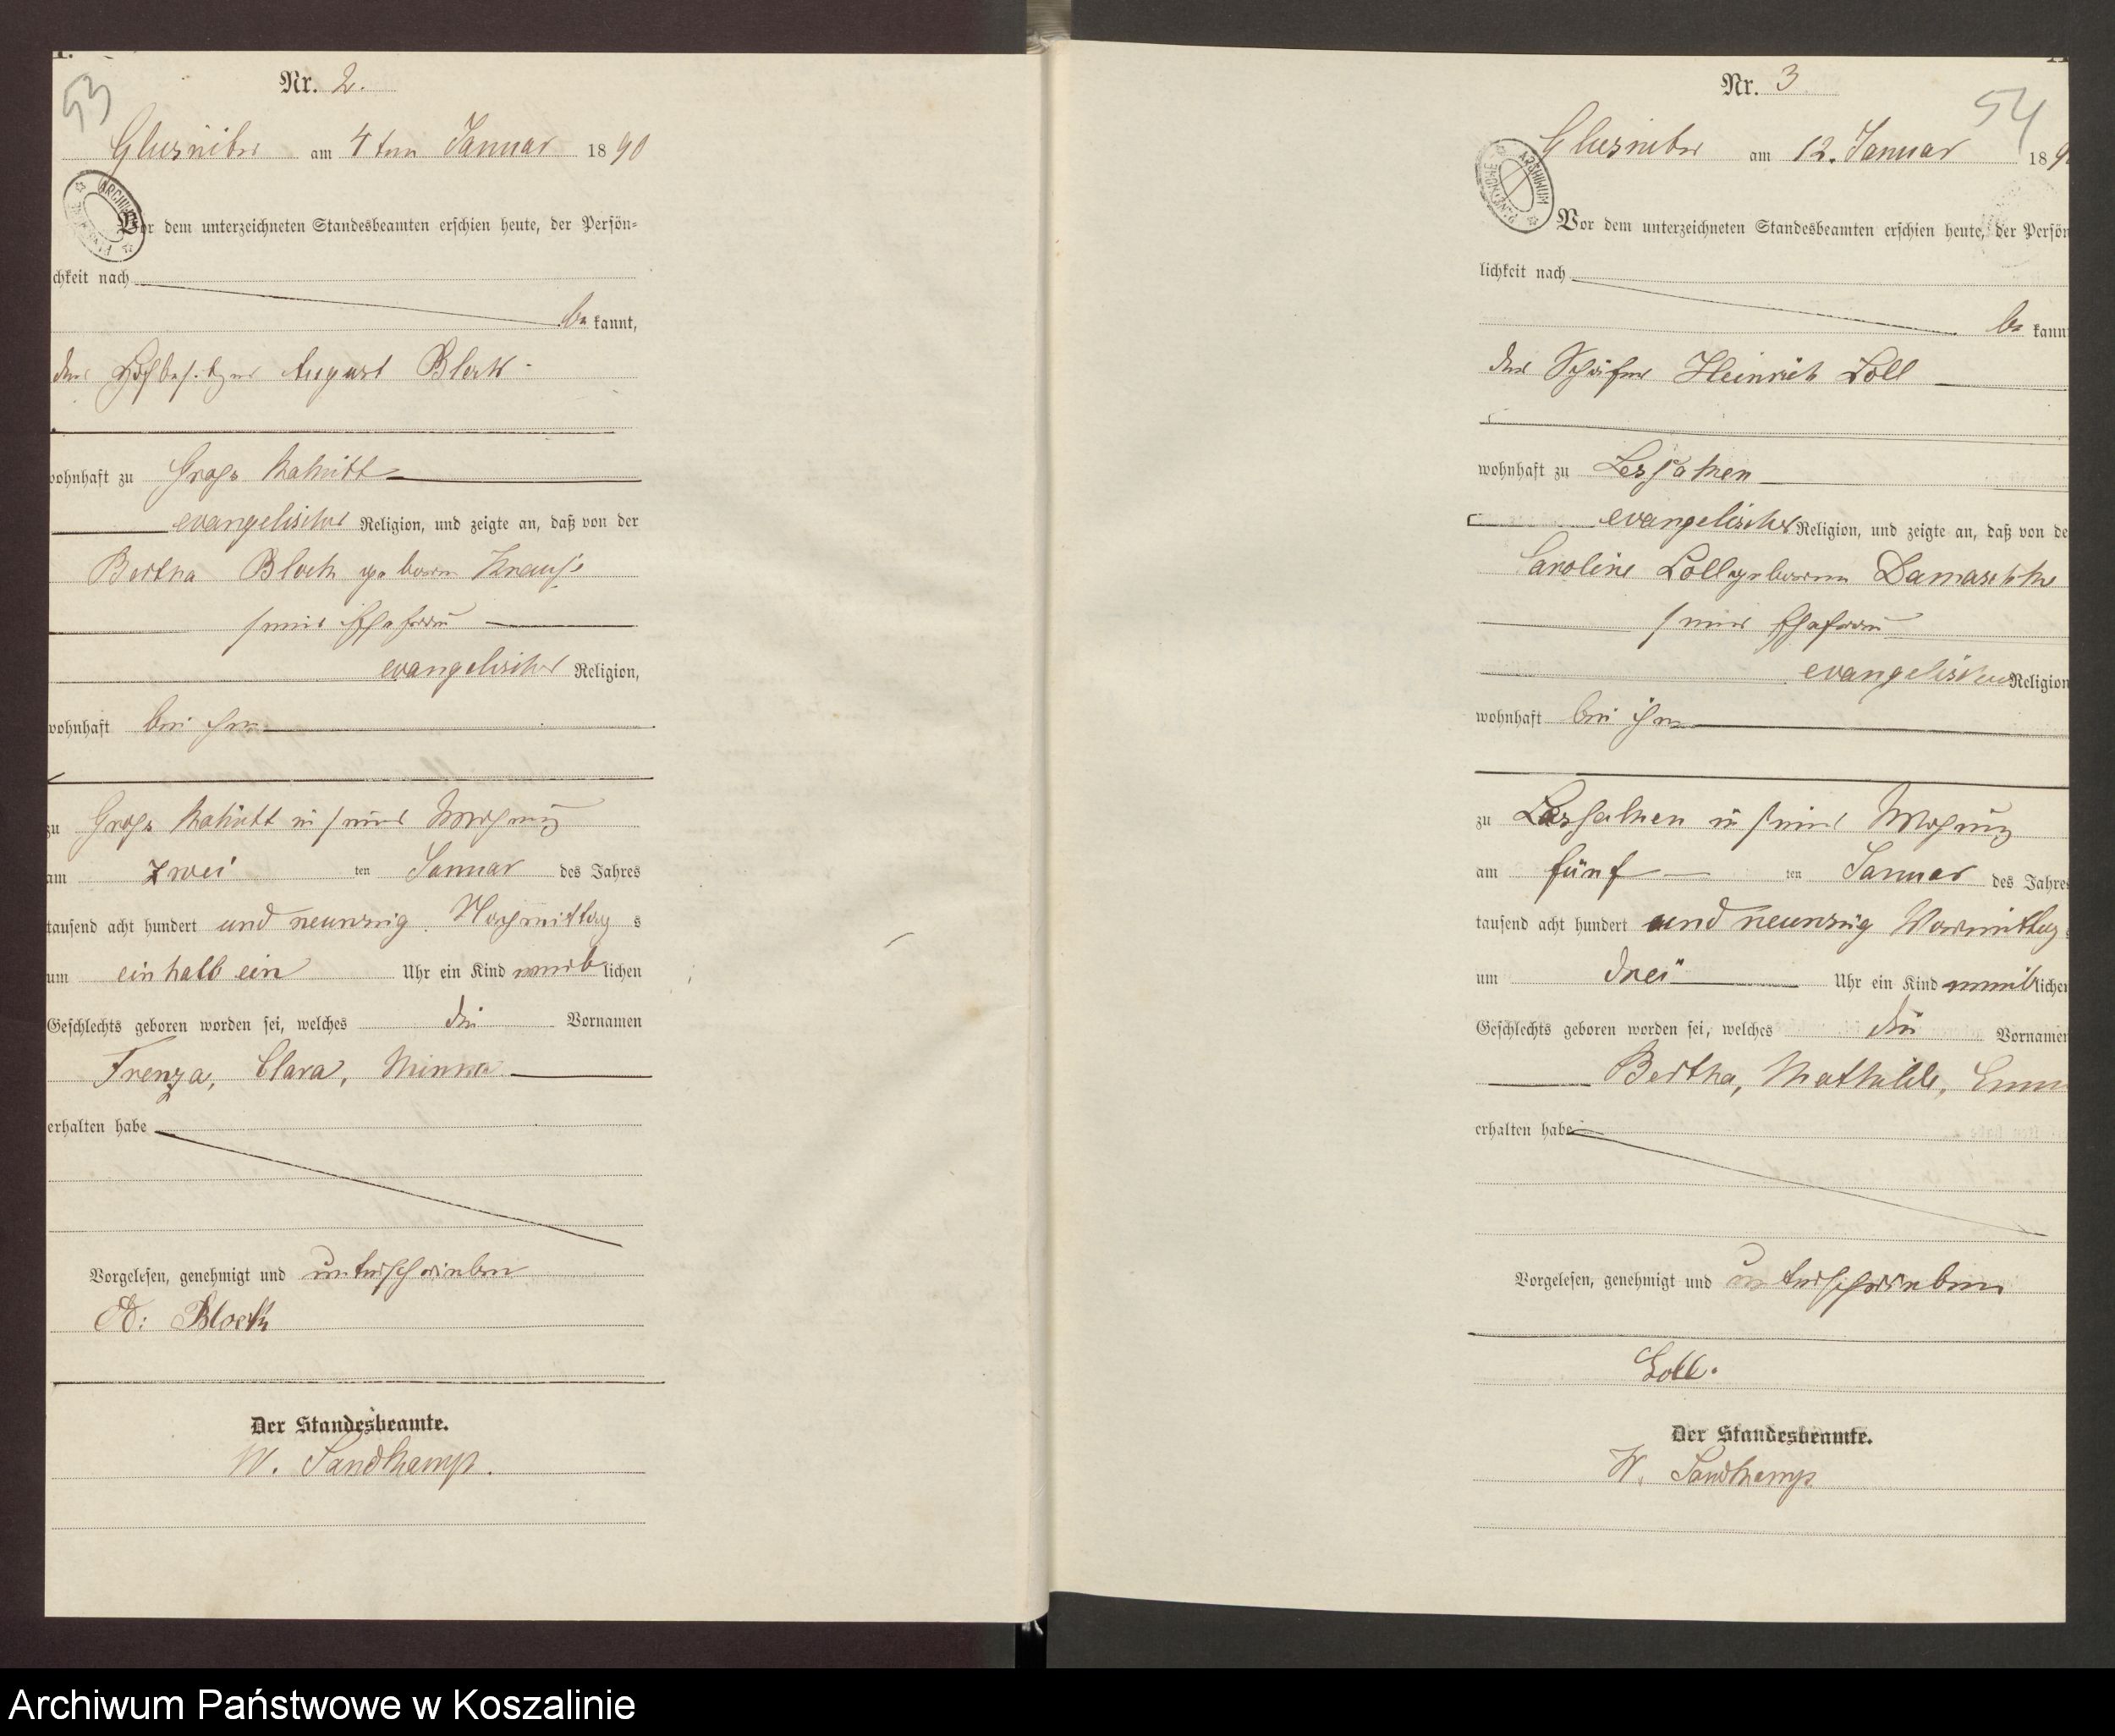 53
Nr. 2.
am 4ten Januar 1890
Vor dem unterzeichneten Standesbeamten erschien heute, der Persön-
chkeit nach
be kannt,
der Hofbesitzer August Block
wohnhaft zu Gross Rakitt
evangelischer Religion, und zeigte an, daß von der
Bertha Block geboren Krause
seiner Ehefrau
evangelischer Religion,
wohnhaft bei ihm
zu Gross Rakitt in seiner Wohnung
am zwei ten Januar des Jahres
tausend acht hundert und neunzig Nachmittag s
um ein halb ein Uhr ein Kind weib lichen
Geschlechts geboren worden sei, welches die Vornamen
Frenza, Clara, Minna
erhalten habe
Vorgelesen, genehmigt und unterschrieben
A: Block
Der Standesbeamte.
W. Sandkamp.
Nr. 3
54
am 12. Januar 189
Vor dem unterzeichneten Standesbeamten erschien heute, der Persön
lichkeit nach
be kann
der Schäfer Heinrich Loll
wohnhaft zu
evangelischer Religion, und zeigte an, daß von de
Caroline Loll geborenen Damaschke
seiner Ehefrau
evangelischer Religion
wohnhaft bei ihm
zu in seiner Wohnung
am fünf ten Januar des Jahres
tausend acht hundert und neunzig Vormittag
um drei Uhr ein Kind weib licher
Geschlechts geboren worden sei, welches die Vornamen
Bertha, Mathilde, Emm
erhalten habe
Vorgelesen, genehmigt und unterschrieben
Loll.
Der Standesbeamte.
W. Sandkamp.
Archiwum Państwowe w Koszalinie